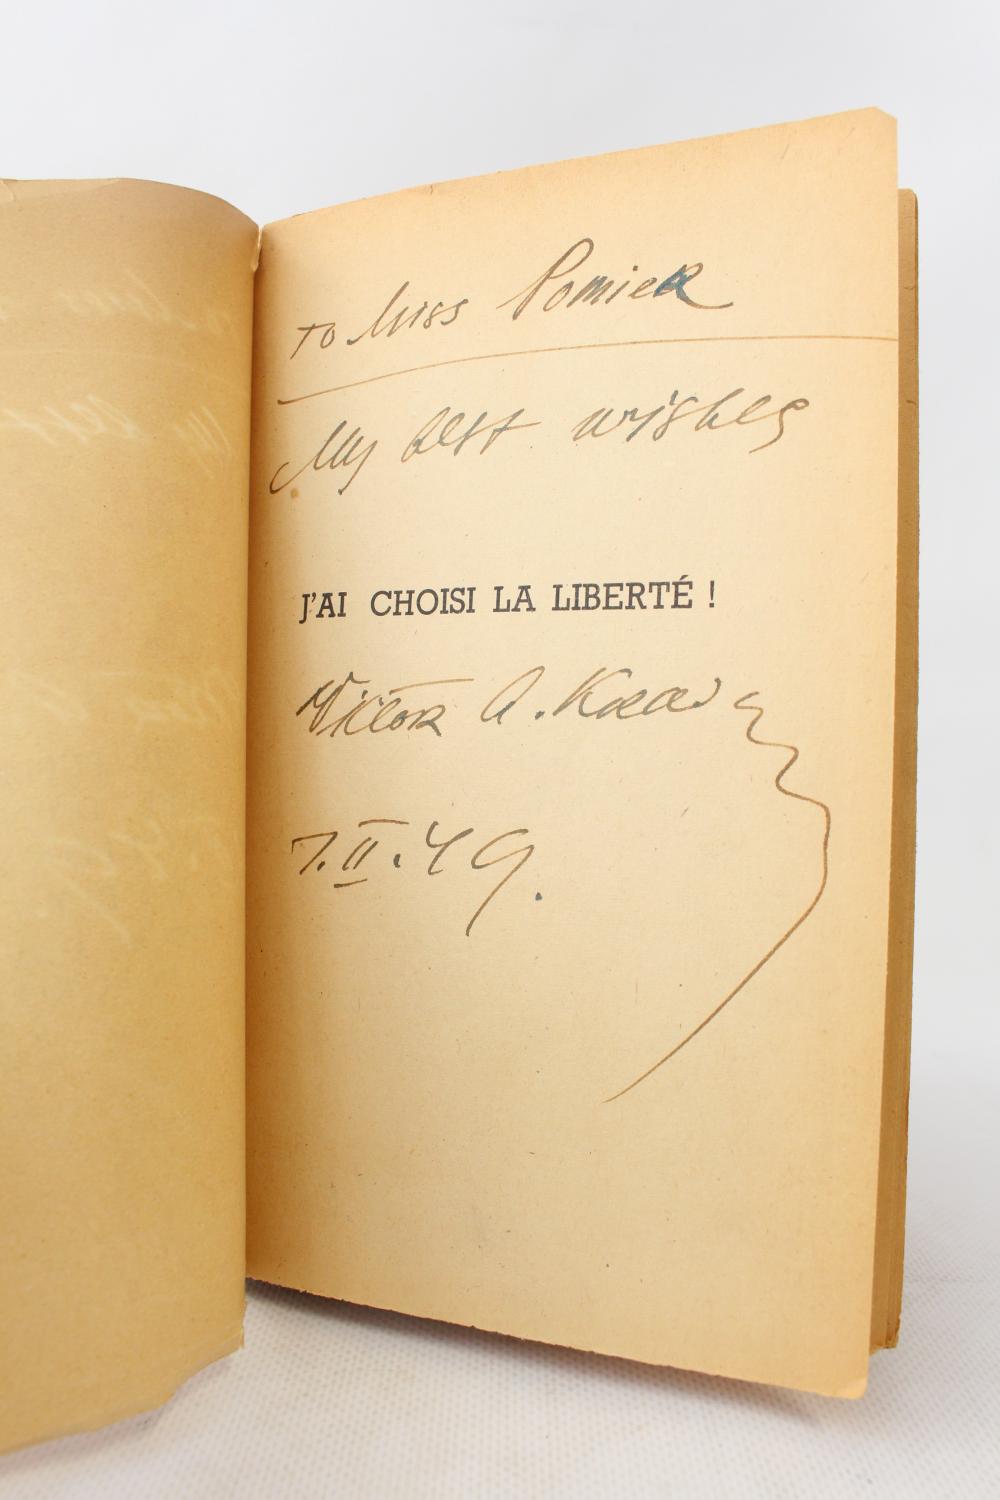 To Miss Pomier
My best wishes
J'AI CHOISI LA LIBERTÉ !
Victor A. Krav
7.II.49.